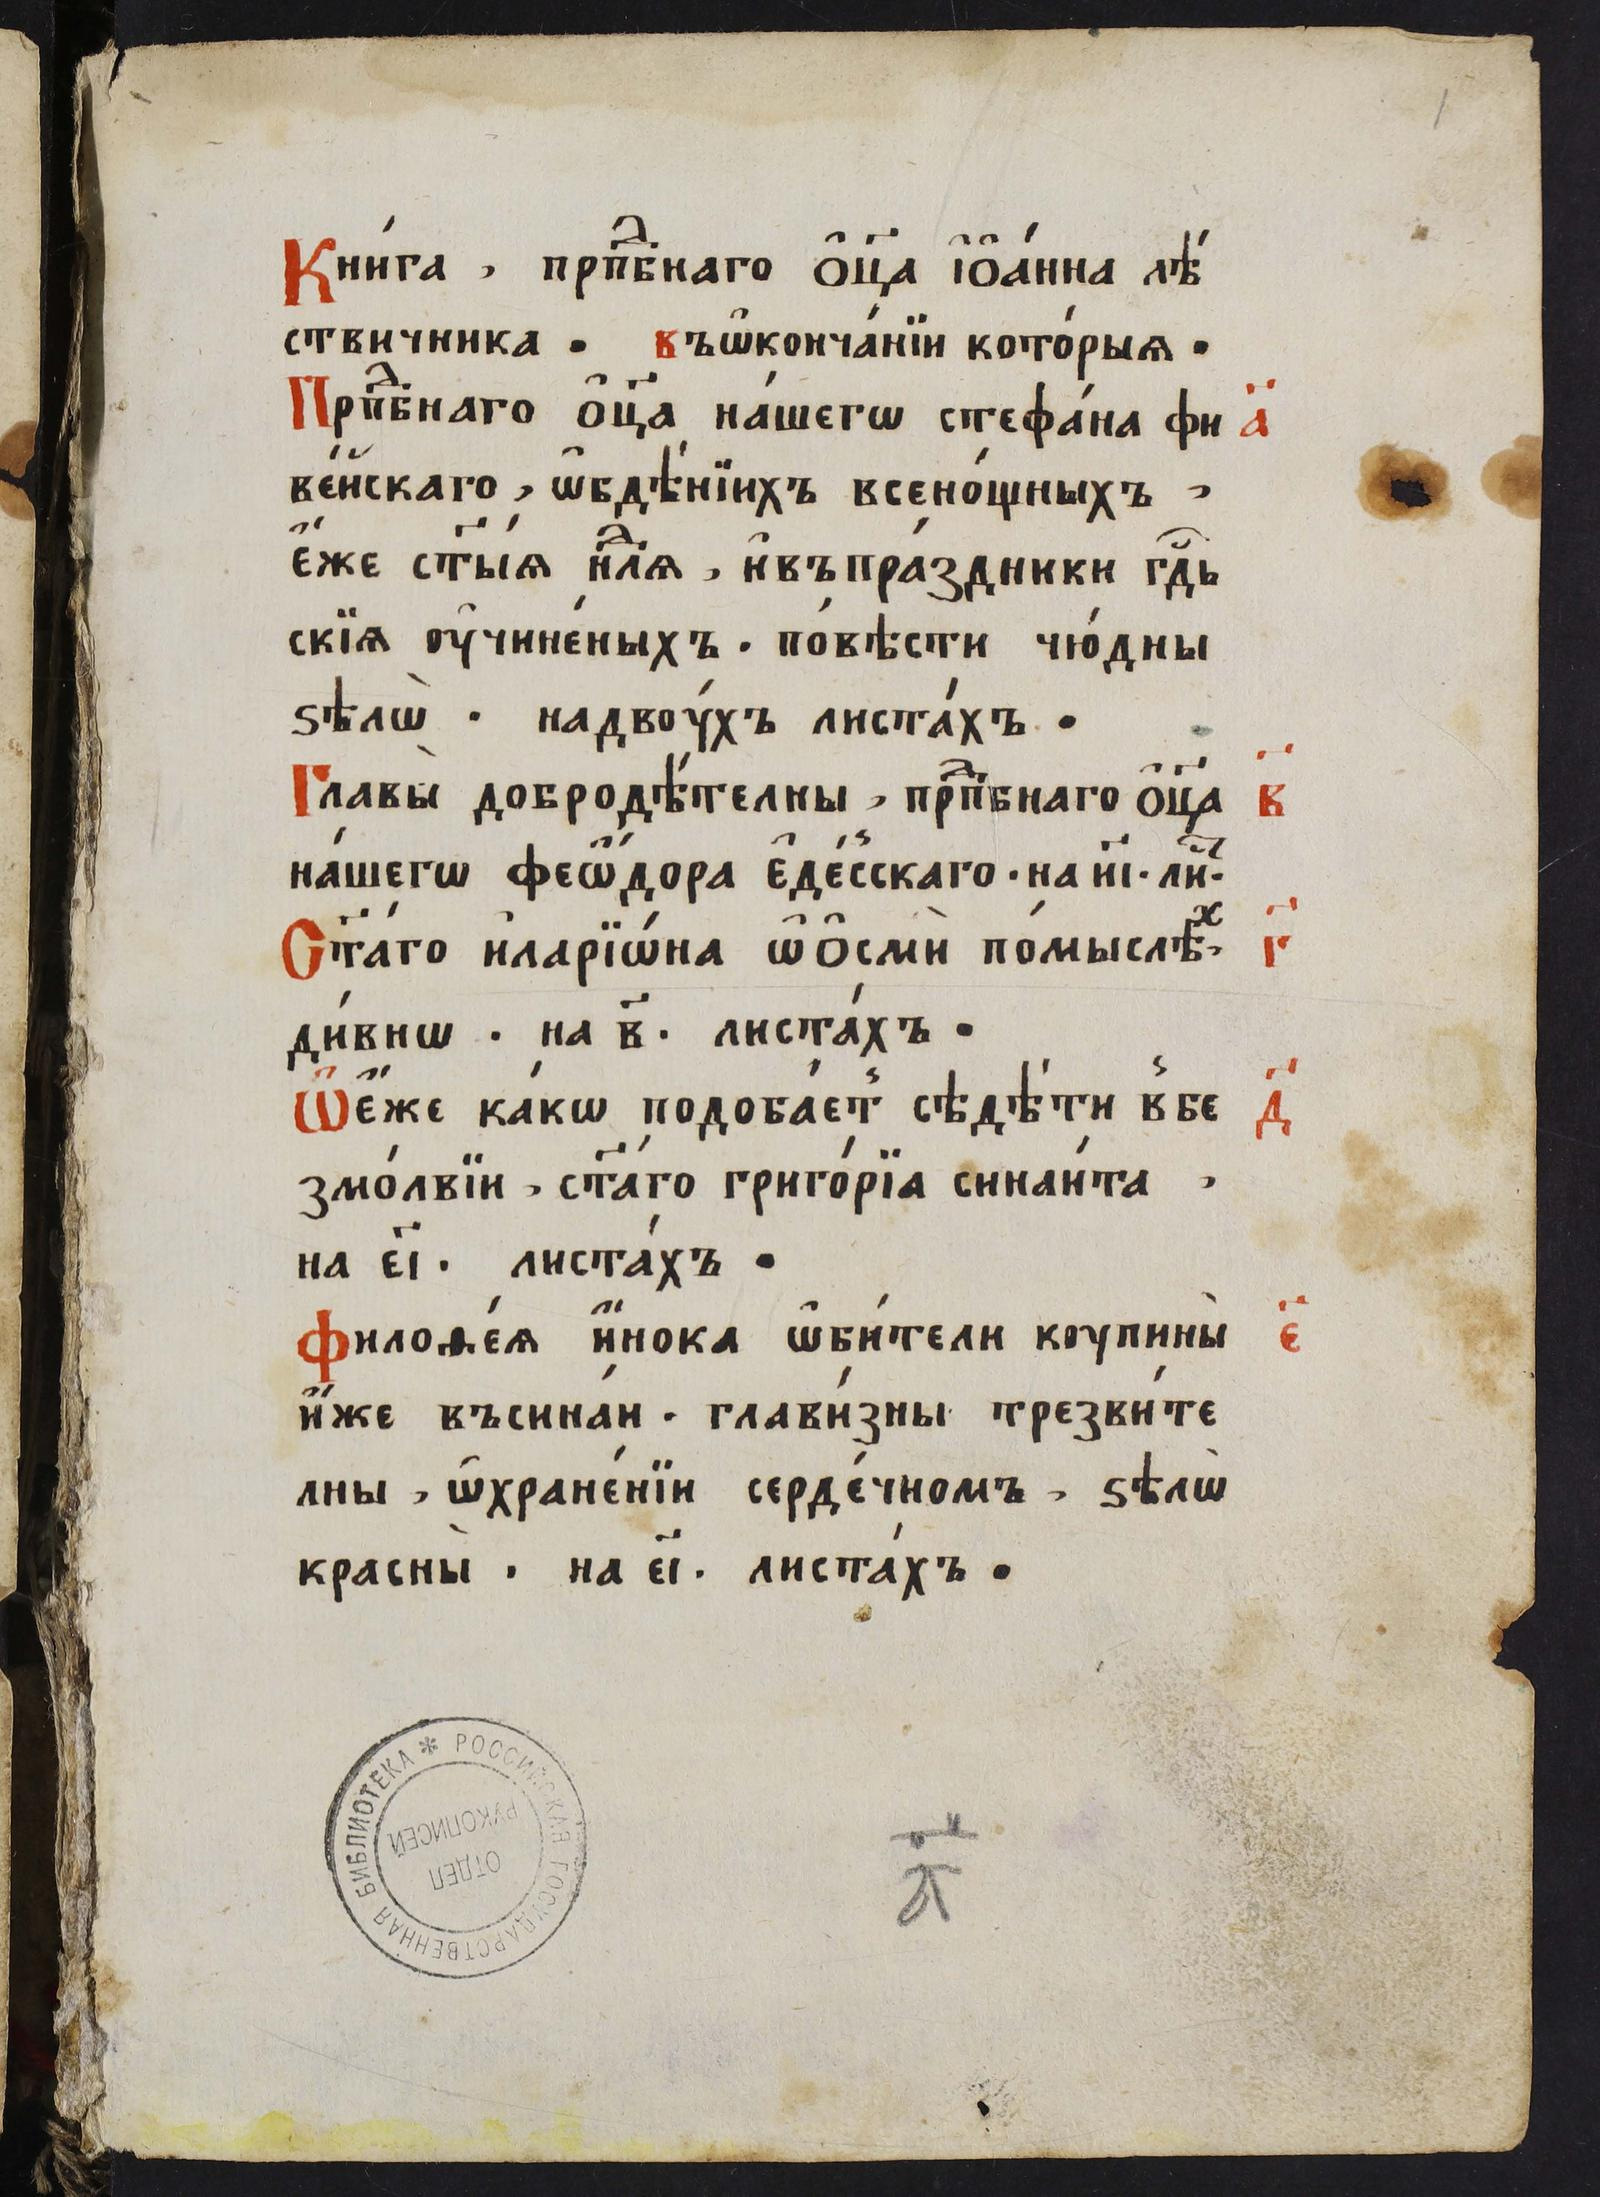 1
Кни́га , прпⷣбнаго ѻ҆ц҃а і҆ѻ҆а́нна лѣ́
ствичника . въѡ҆конча́нїи кото́рыѧ .
Прпⷣбнаго ѻ҆ц҃а на́шегѡ стефа́на фи а҃
ве́йскаго , ѡ҆бдѣ́нїихъ всено́щныхъ ,
є҆́же ст҃ы́ѧ н҃лⷣѧ , и҆въпра́здники гд҇ь
скїѧ ᲂу҆чине́ныхъ . по́вѣсти чю́дны
ѕѣлѡ̀ . надвоу́хъ листа́хъ .
Главы̀ добродѣ́телны , прпⷣбнаго ѻ҆ц҃а в҃
на́шегѡ феѡ҆́дора є҆де́сскаго . на и҃і . ли҃ .
Ст҃а́го и҆ларїѡ́на ѡ҆ѻ҆смѝ по́мыслѣⷯ , г҃
ди́внѡ . на в҃ . листа́хъ .
Ѡ҆є҆́же ка́кѡ подоба́етъ сѣдѣ́ти в̾бе д҃
змо́лвїи , ст҃а́го григо́рїа синаи́та ,
на є҃і . листа́хъ .
Филоѳе́ѧ и҆́нока ѡ҆би́тели коупины̀ є҃
и҆́же въсина́и . глави́зны трезви́те
лны , ѡ҆хране́нїи серде́чномъ , ѕѣлѡ̀
красны̀ . на є҃і . листа́хъ .
РОССИЙСКАЯ ГОСУДАРСТВЕННАЯ БИБЛИОТЕКА *
ОТДЕЛ
РУКОПИСЕЙ